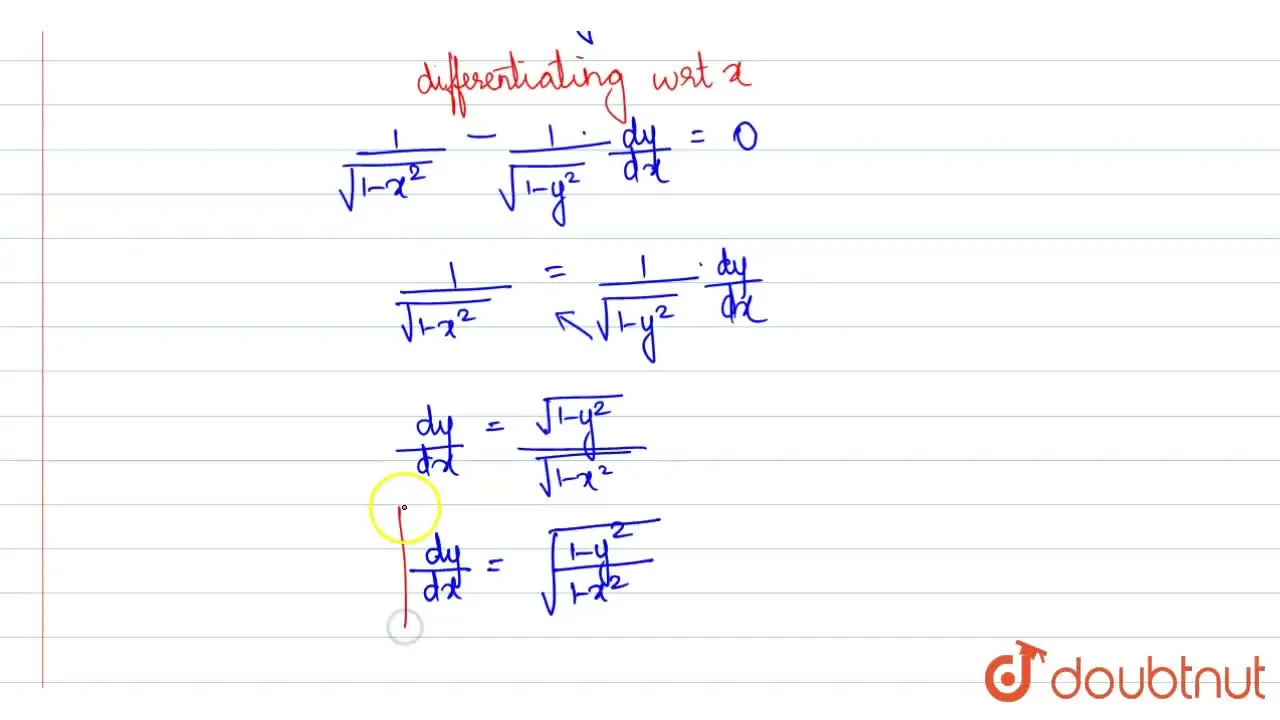 differentiating wrt x
1/√(1-x²) - 1/√(1-y²) · dy/dx = 0
1/√(1-x²) = 1/√(1-y²) · dy/dx
dy/dx = √(1-y²)/√(1-x²)
dy/dx = √((1-y²)/(1-x²))
doubtnut